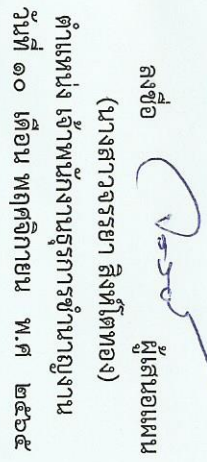 ลงชื่อ ผู้เสนอแผน
(นางสาวจรรยา สิงห์โตทอง)
ตำแหน่ง เจ้าพนักงานธุรการชำนาญงาน
วันที่ ๑๐ เดือน พฤศจิกายน พ.ศ ๒๕๖๕